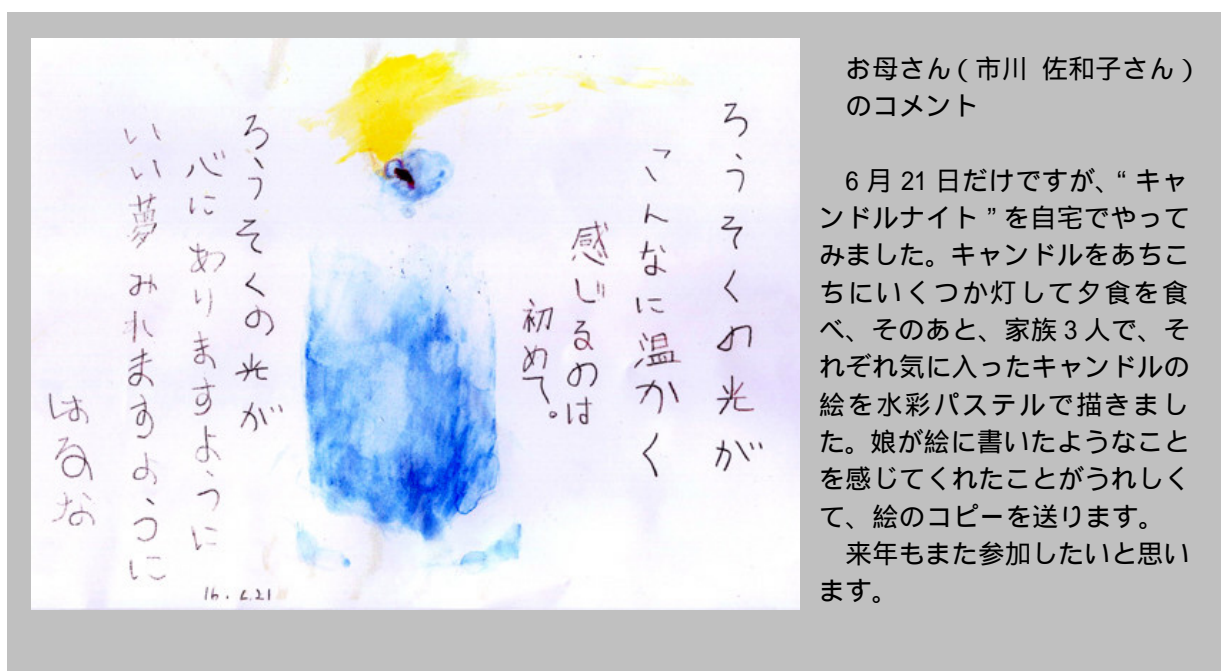 ろうそくの光が
こんなに温かく
感じるのは
初めて。
ろうそくの光が
心にありますように
いい夢みれますように
はるな
16.6.21
お母さん(市川 佐和子さん)
のコメント
6月21日だけですが、“キャ
ンドルナイト”を自宅でやって
みました。キャンドルをあちこ
ちにいくつか灯して夕食を食
べ、そのあと、家族3人で、そ
れぞれ気に入ったキャンドルの
絵を水彩パステルで描きまし
た。娘が絵に書いたようなこと
を感じてくれたことがうれしく
て、絵のコピーを送ります。
来年もまた参加したいと思い
ます。